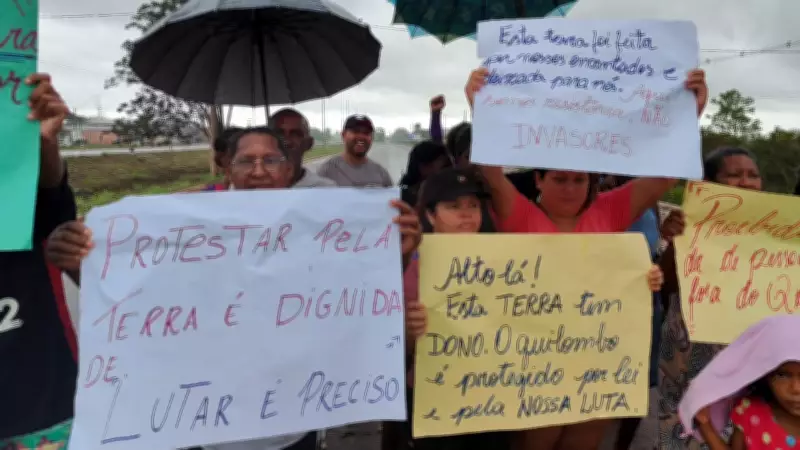 Esta terra foi feita
por nossos encantados e
deixada para nós. Aqui
somos resistência, NÃO
INVASORES
PROTESTAR PELA
TERRA É DIGNIDA
DE. "
LUTAR É PRECISO
Alto lá!
Esta TERRA tem
DONO. O quilombo
é protegido por lei
e pela NOSSA LUTA.
da de
fora do
2